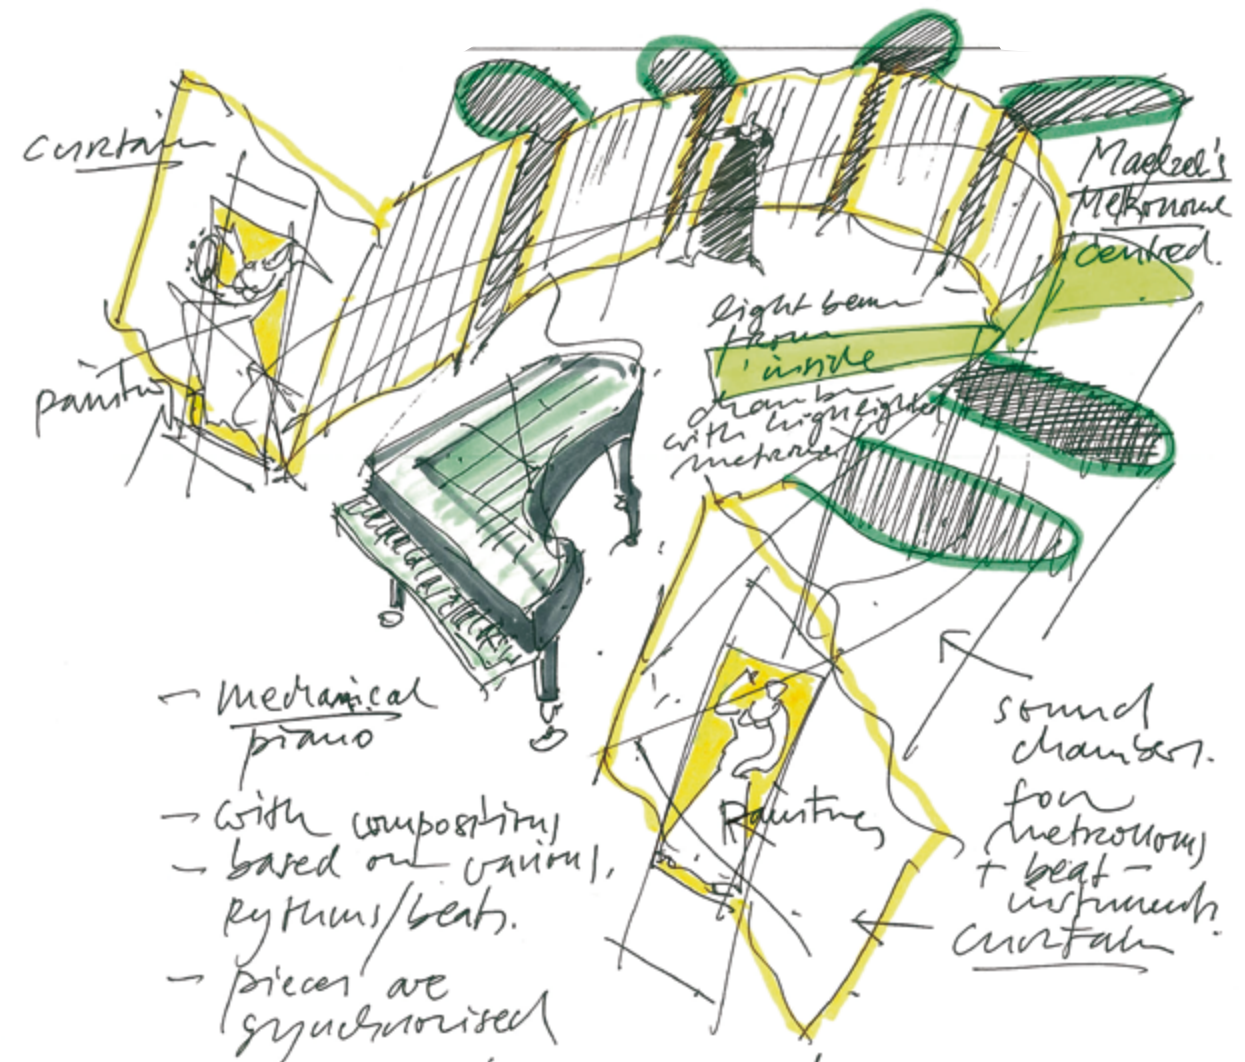 curtain
Maelzel's
Metronome
centred.
light beam
from
inside
chamber
with highlighted
metronome
painting
- mechanical
piano
- with compositions
- based on various,
Rythms/beats.
- pieces are
synchronised
Painting
sound
chambers.
for
metronoms
+ beat-
instruments.
curtain